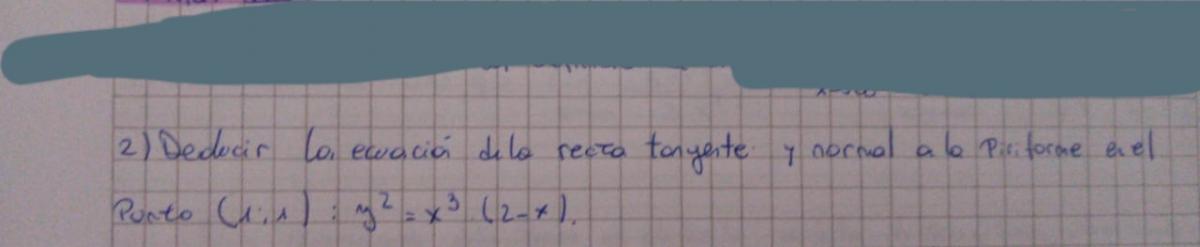 2) Deducir la ecuación de la recta tangente y normal a la Piriforme en el
Punto (1;1) : y² = x³ (2-x).